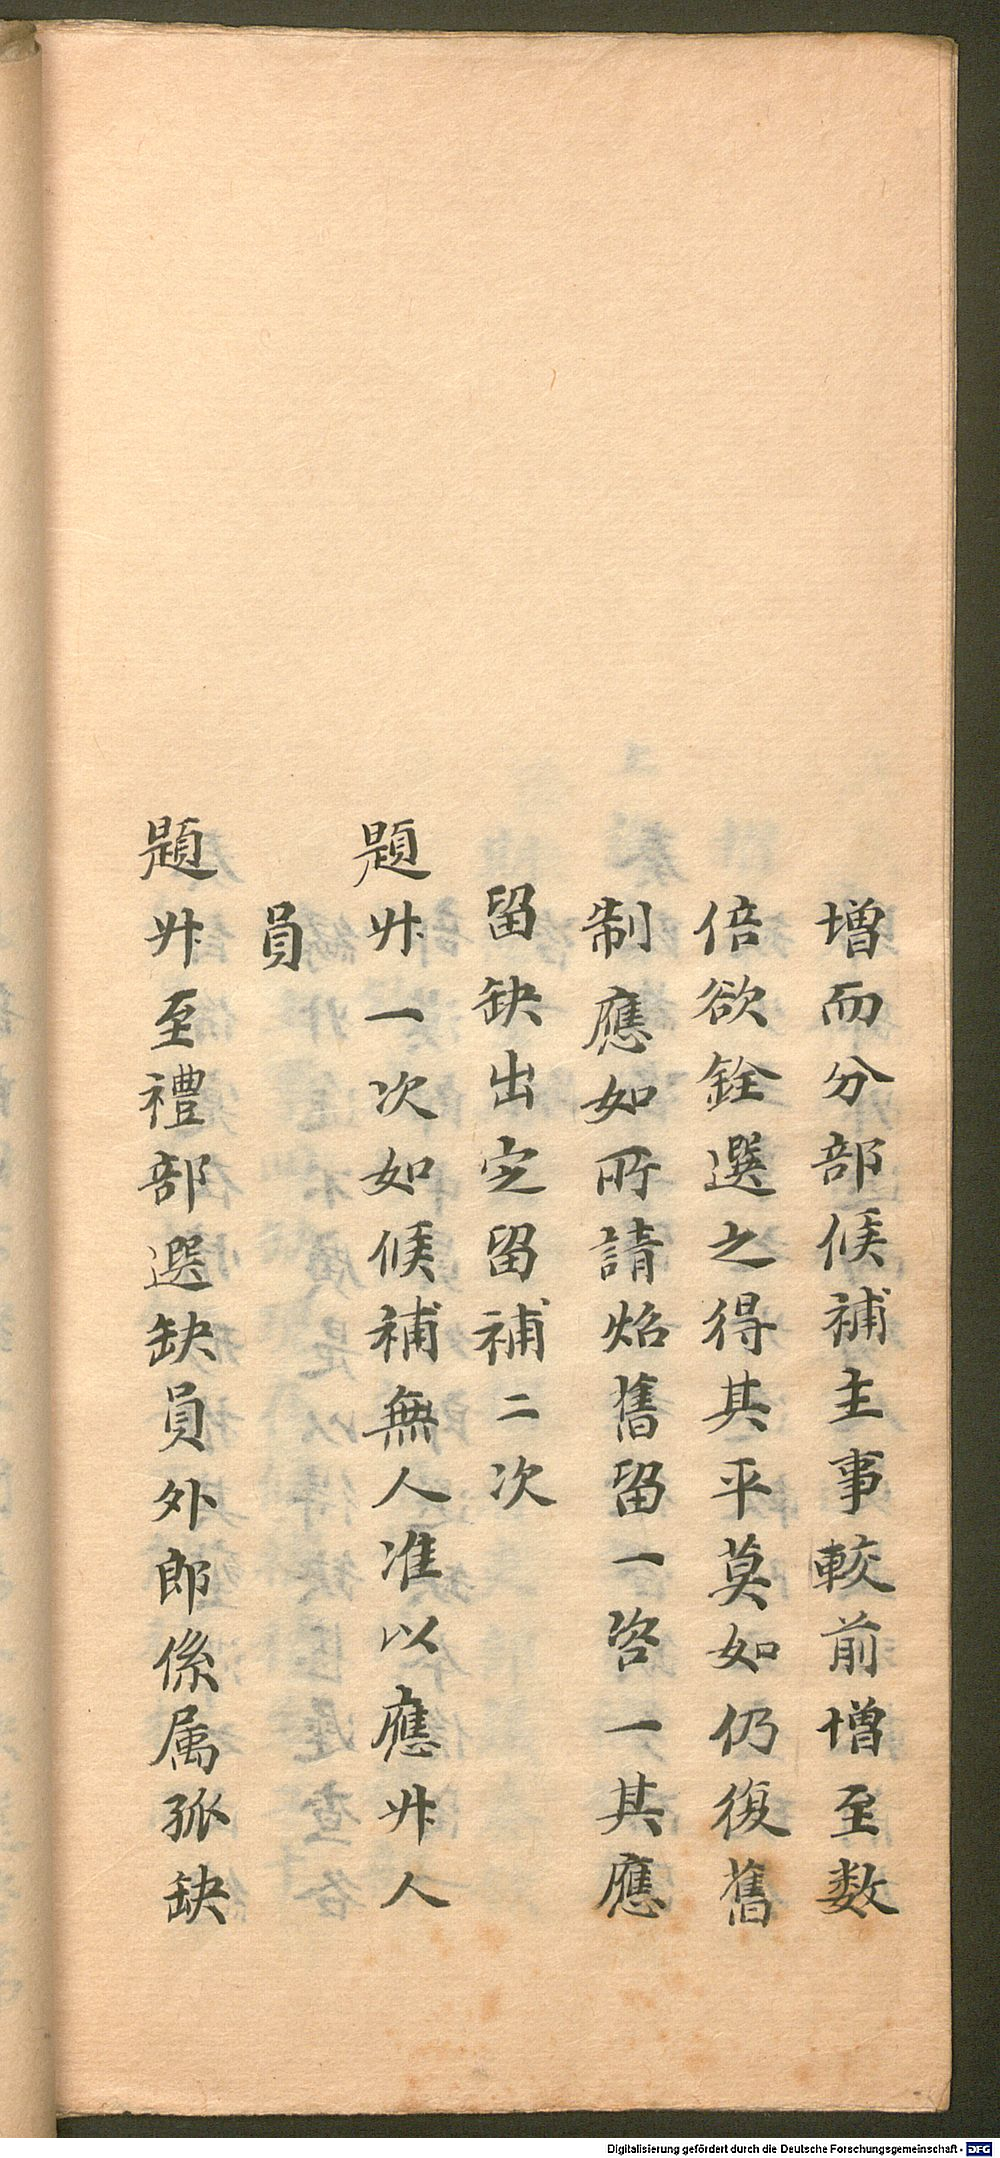 增而分部候補主事較前增至数
倍欲銓選之得其平莫如仍復舊
制應如所請炤舊留一咨一其應
留缺出定留補二次
題陞一次如候補無人准以應陞人
員
題陞至禮部選缺員外郎係属孤缺
Digitalisierung gefördert durch die Deutsche Forschungsgemeinschaft - DFG